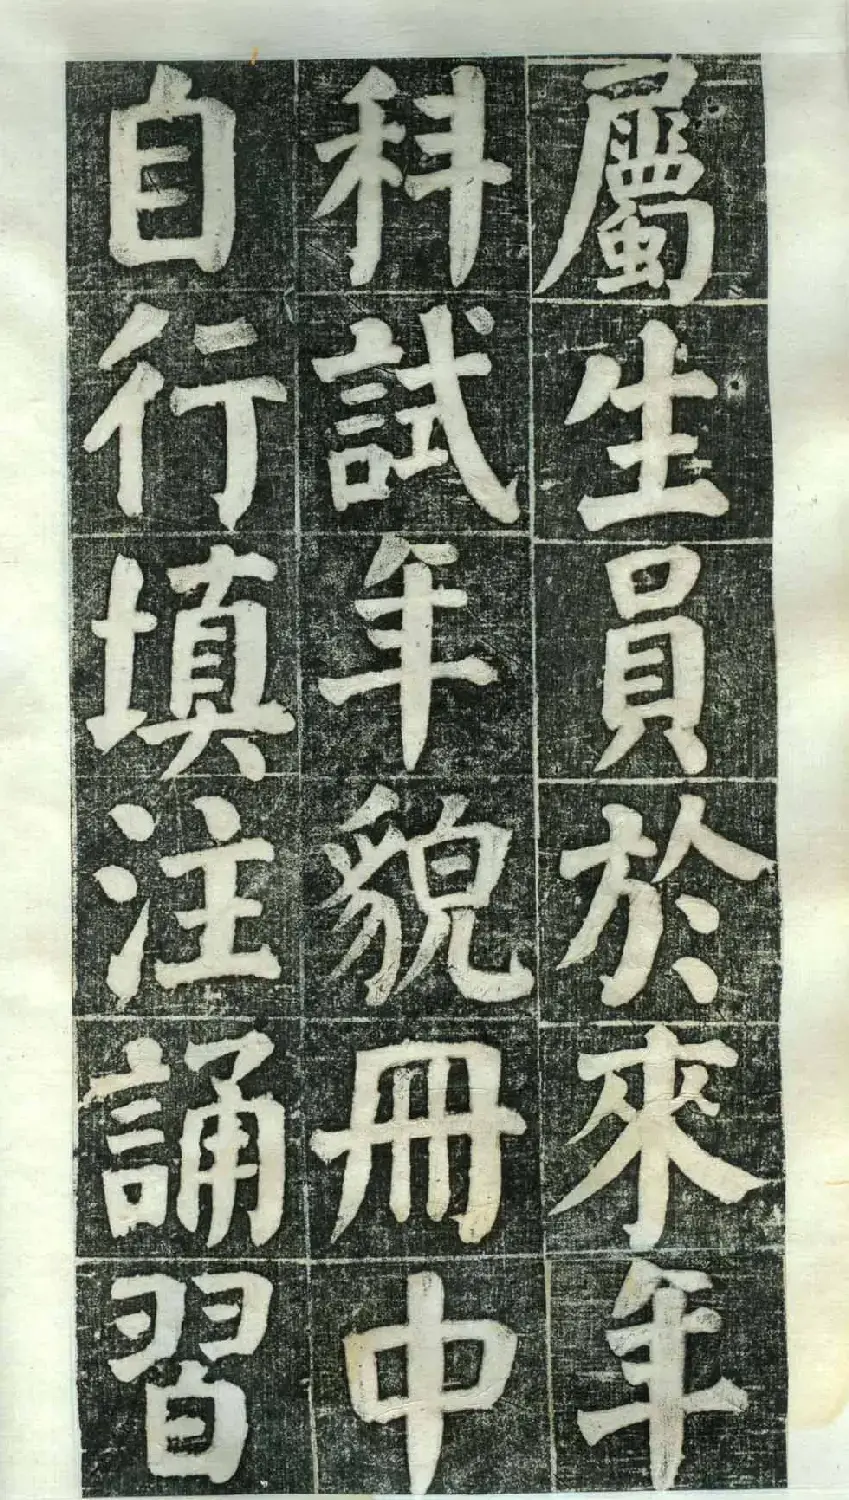 屬生員於來年
科試年貌冊中
自行填注誦習